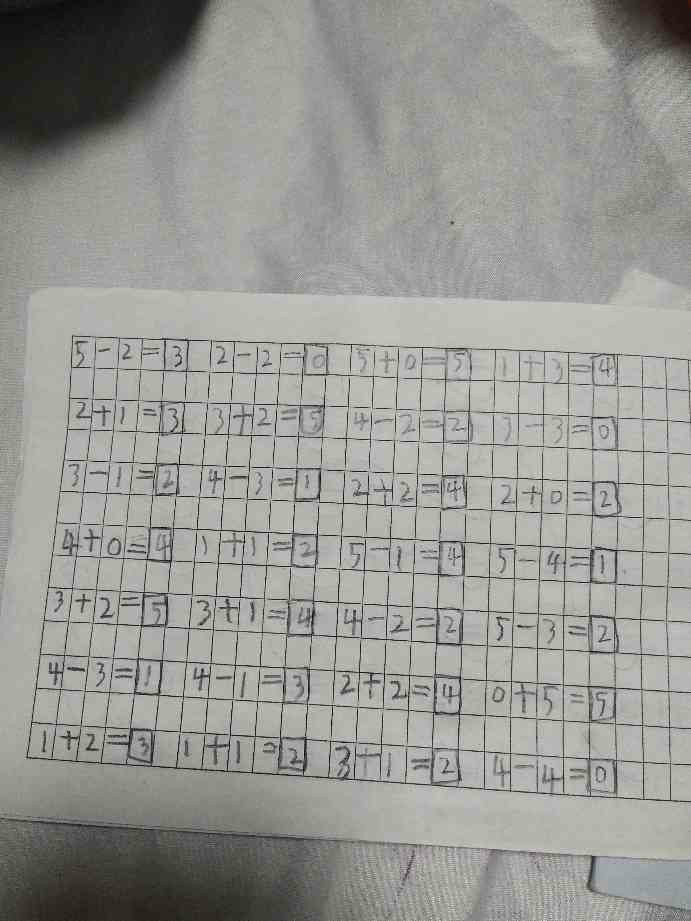 5-2=3 2-2=0 5+0=5 1+3=4
2+1=3 3+2=5 4-2=2 3-3=0
3-1=2 4-3=1 2+2=4 2+0=2
4+0=4 1+1=2 5-1=4 5-4=1
3+2=5 3+1=4 4-2=2 5-3=2
4-3=1 4-1=3 2+2=4 0+5=5
1+2=3 1+1=2 3+1=2 4-4=0